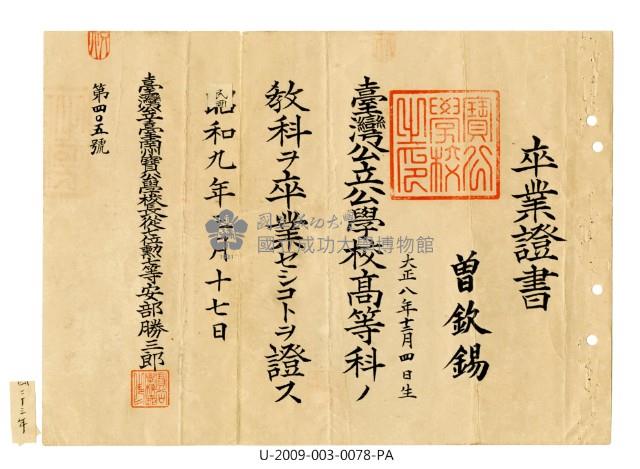 卒業證書
曽欽錫
大正八年十二月四日生
寶公
學校
之印
臺灣公立公學校高等科ノ
教科ヲ卒業セシコトヲ證ス
昭和九年三月十七日
臺灣公立臺南州寶公學校長從七位勲七等安部勝三郎
第四〇五號
國立成功大學
國立成功大學博物館
二十三年
U-2009-003-0078-PA